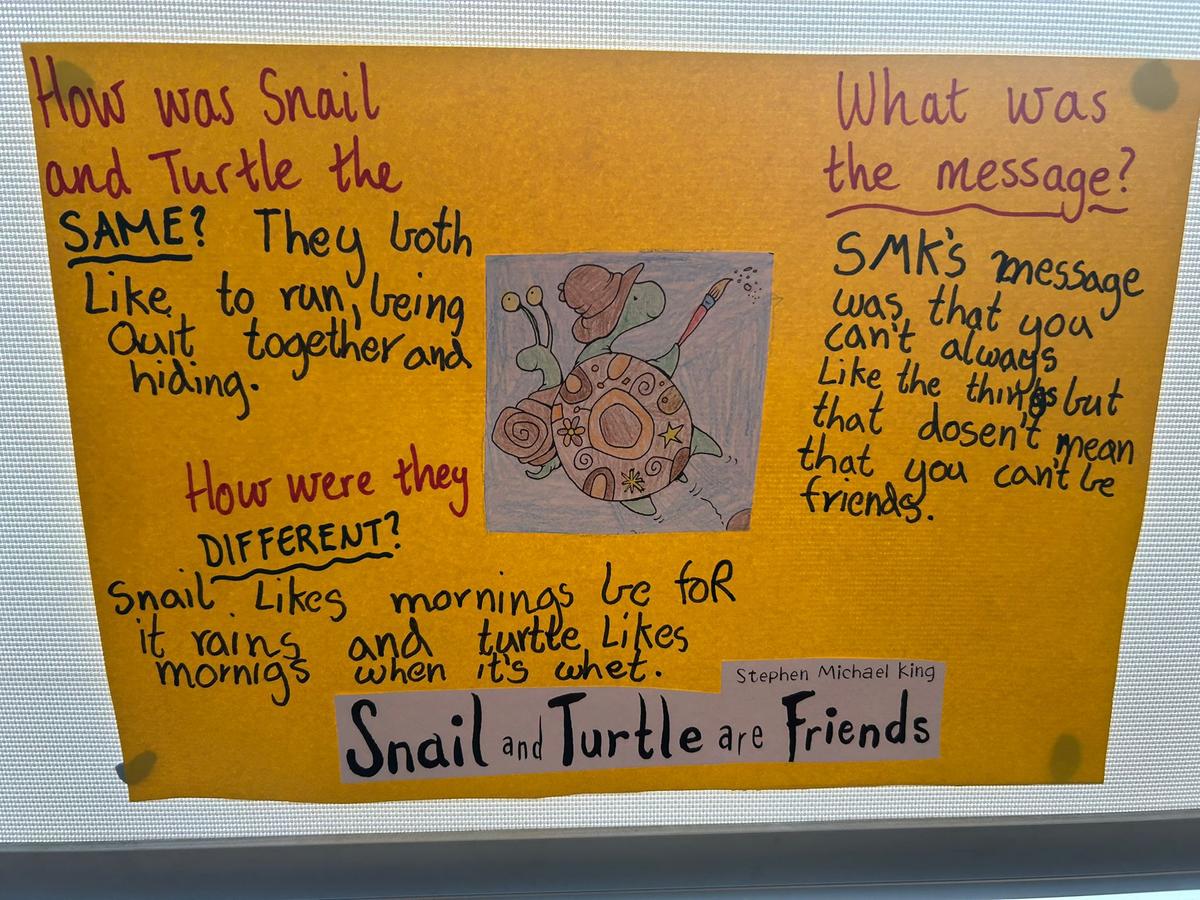 How was Snail
and Turtle the
SAME? They both
Like to run, being
Quit together and
hiding.
How were they
DIFFERENT?
Snail Likes mornings be foR
it rains and turtle Likes
mornigs when it's whet.
What was
the message?
SMK's message
was that you
can't always
Like the things but
that dosen't mean
that you can't be
friends.
Stephen Michael King
Snail and Turtle are Friends